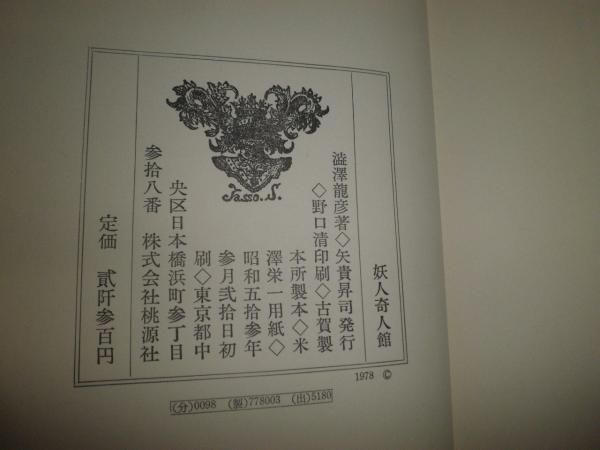 妖人奇人館
澁澤龍彦著◇矢貴昇司発行
◇野口清印刷◇古賀製
本所製本◇米
澤栄一用紙◇
昭和五拾参年
参月弐拾日初
刷◇東京都中
央区日本橋浜町参丁目
参拾八番 株式会社桃源社
定価 貳阡参百円
Tasso. S.
1978 ©
(分)0098 (製)778003 (出)5180